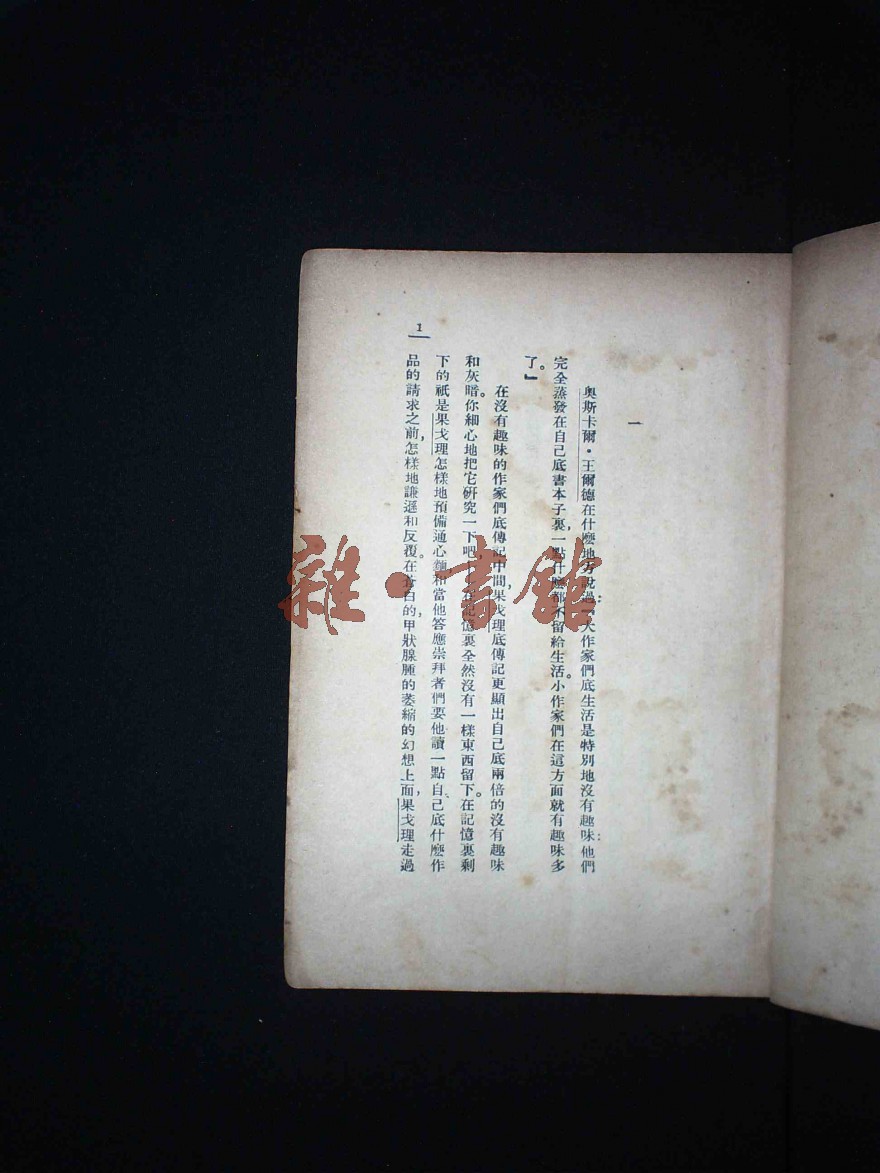 一
奧斯卡爾·王爾德在什麽地方說過:『大作家們底生活是特別地沒有趣味:他們
完全蒸發在自己底書本子裏,一點什麽都不留給生活。小作家們在這方面就有趣味多
了。』
在沒有趣味的作家們底傳記中間,果戈理底傳記更顯出自己底兩倍的沒有趣味
和灰暗。你細心地把它研究一下吧,在記憶裏全然沒有一樣東西留下。在記憶裏剩
下的祇是果戈理怎樣地預備通心麵,和當他答應崇拜者們要他讀一點自己底什麽作
品的請求之前,怎樣地謙遜和反覆。在蒼白的,甲狀腺腫的萎縮的幻想上面,果戈理走過
1
雜·書館